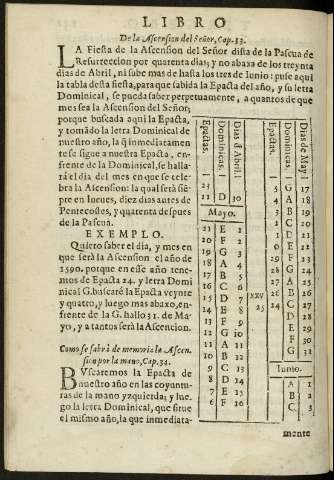 LIBRO
De la Ascension del Señor, Cap. 33.
LA Fiesta de la Ascension del Señor dista de la Pascua de
Resurreccion por quarenta dias; y no abaxa de los treynta
dias de Abril, ni sube mas de hasta los tres de Iunio: puse aqui
la tabla desta fiesta, para que sabida la Epacta del año, y su letra
Dominical, se pueda saber perpetuamente, a quantos de que
mes sea la Ascension del Señor;
porque buscada aqui la Epacta,
y tomãdo la letra Dominical de
nuestro año, la q̃ inmediatamen-
te se sigue a nuestra Epacta, en-
frente de la Dominical, se halla-
rá el dia del mes en que se cele-
bra la Ascension: la qual será siẽ-
pre en Iueues, diez dias antes de
Pentecostes, y quarenta despues
de la Pascua.
EXEMPLO.
Quiero saber el dia, y mes en
que será la Ascension el año de
1590. porque en este año tene-
mos de Epacta 24. y letra Domi
nical G. buscaré la Epacta veynte
y quatro, y luego mas abaxo, en-
frente de la G. hallo 31. de Ma-
yo, y a tantos será la Ascencion.
Como se sabrà de memoria la Ascen-
sion por la mano, Cap. 34.
BVscaremos la Epacta de
nuestro año en las coyuntu-
ras de la mano yzquierda; y lue-
go la letra Dominical, que sigue
el mismo año, la que inmediata-
Epactas. Dominicas. Dias d̃ Abril.
23
22 D 30
Mayo.
21 E 1
20 F 2
19 G 3
18 A 4
17 B 5
16 C 6
15 D 7
14 E 8
13 F 9
12 G 10
11 A 11
10 B 12
9 C 13
8 D 14
7 E 15
6 F 16
Epactas. Dominicas. Dias de May
5 G 17
4 A 18
3 B 19
2 C 20
1 D 21
E 22
29 F 23
28 G 24
27 A 25
XXV 26 B 26
25 24 C 27
D 28
E 29
F 30
G 31
Iunio.
A 1
B 2
C 3
mente